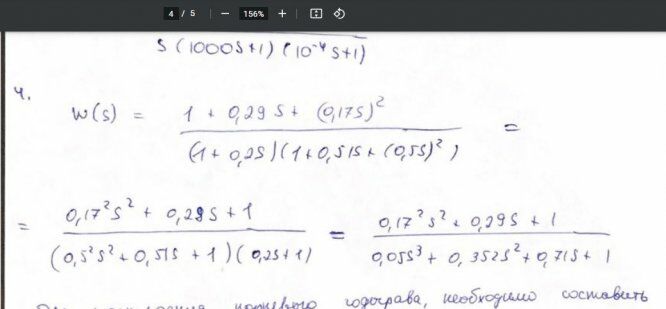 4 / 5 — 156% +
S (1000S+1) (10⁻⁴S+1)
4.
W(s) = (1 + 0,29S + (0,17S)²) / ((1+0,2S)(1+0,51S+(0,5S)²)) =
= (0,17²S² + 0,29S + 1) / ((0,5²S²+0,51S+1)(0,2S+1)) = (0,17²S² + 0,29S + 1) / (0,05S³ + 0,352S² + 0,71S + 1)
годографа, необходимо составить